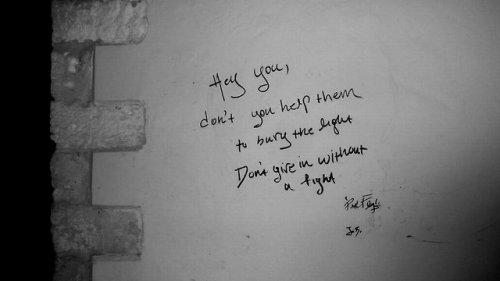 Hey you,
don't you help them
to bury the light
Don't give in without
a fight